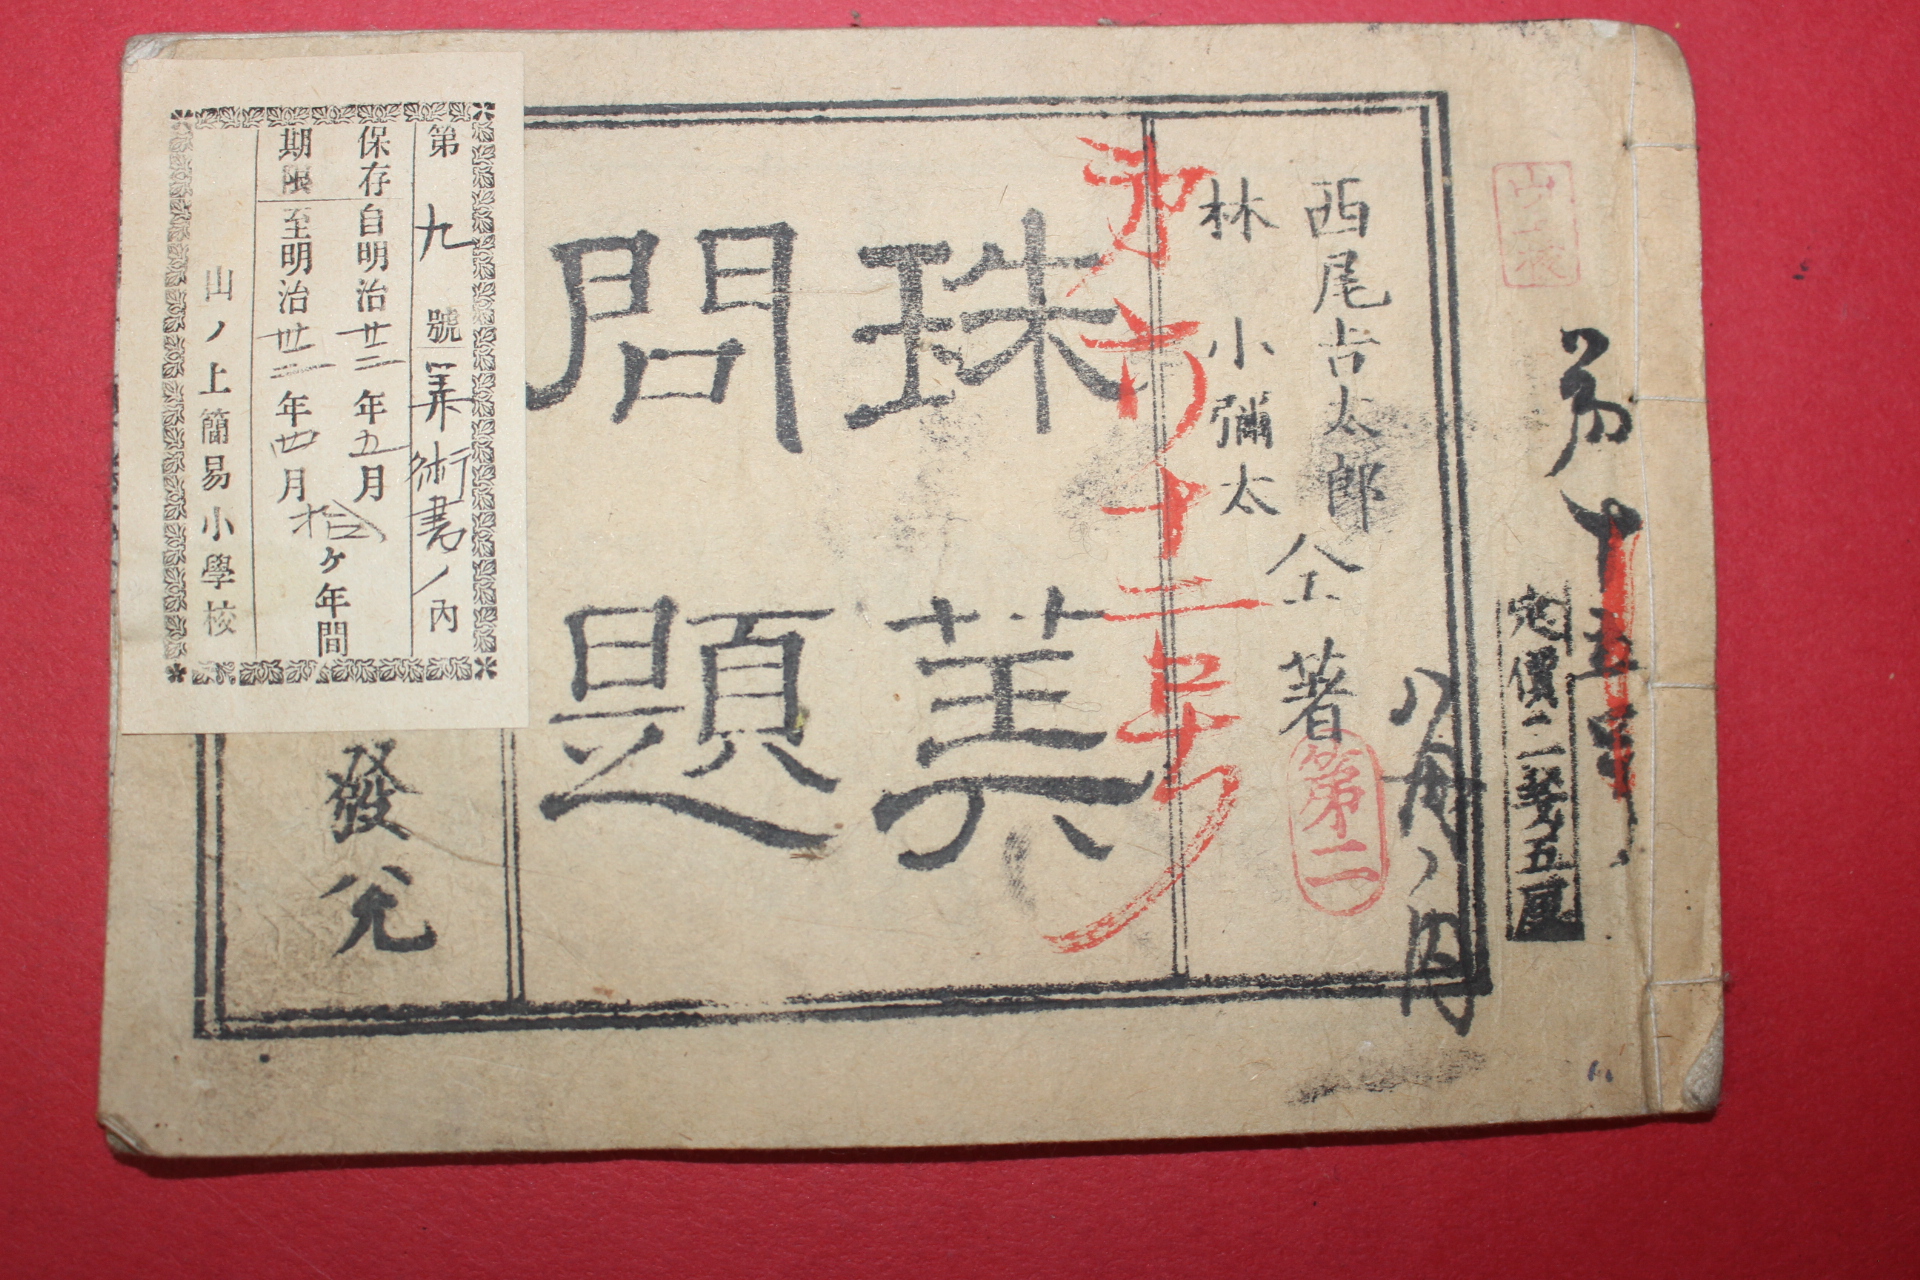 第十五号
定價二錢五厘
八冊ノ内
西尾吉太郎
林小彌太
仝著
第二
第六十二号
珠筭
問題
發兌
第九號筭術書ノ内
保存期限
自明治廿二年五月
至明治卅二年四月
拾ヶ年間
山ノ上簡易小學校